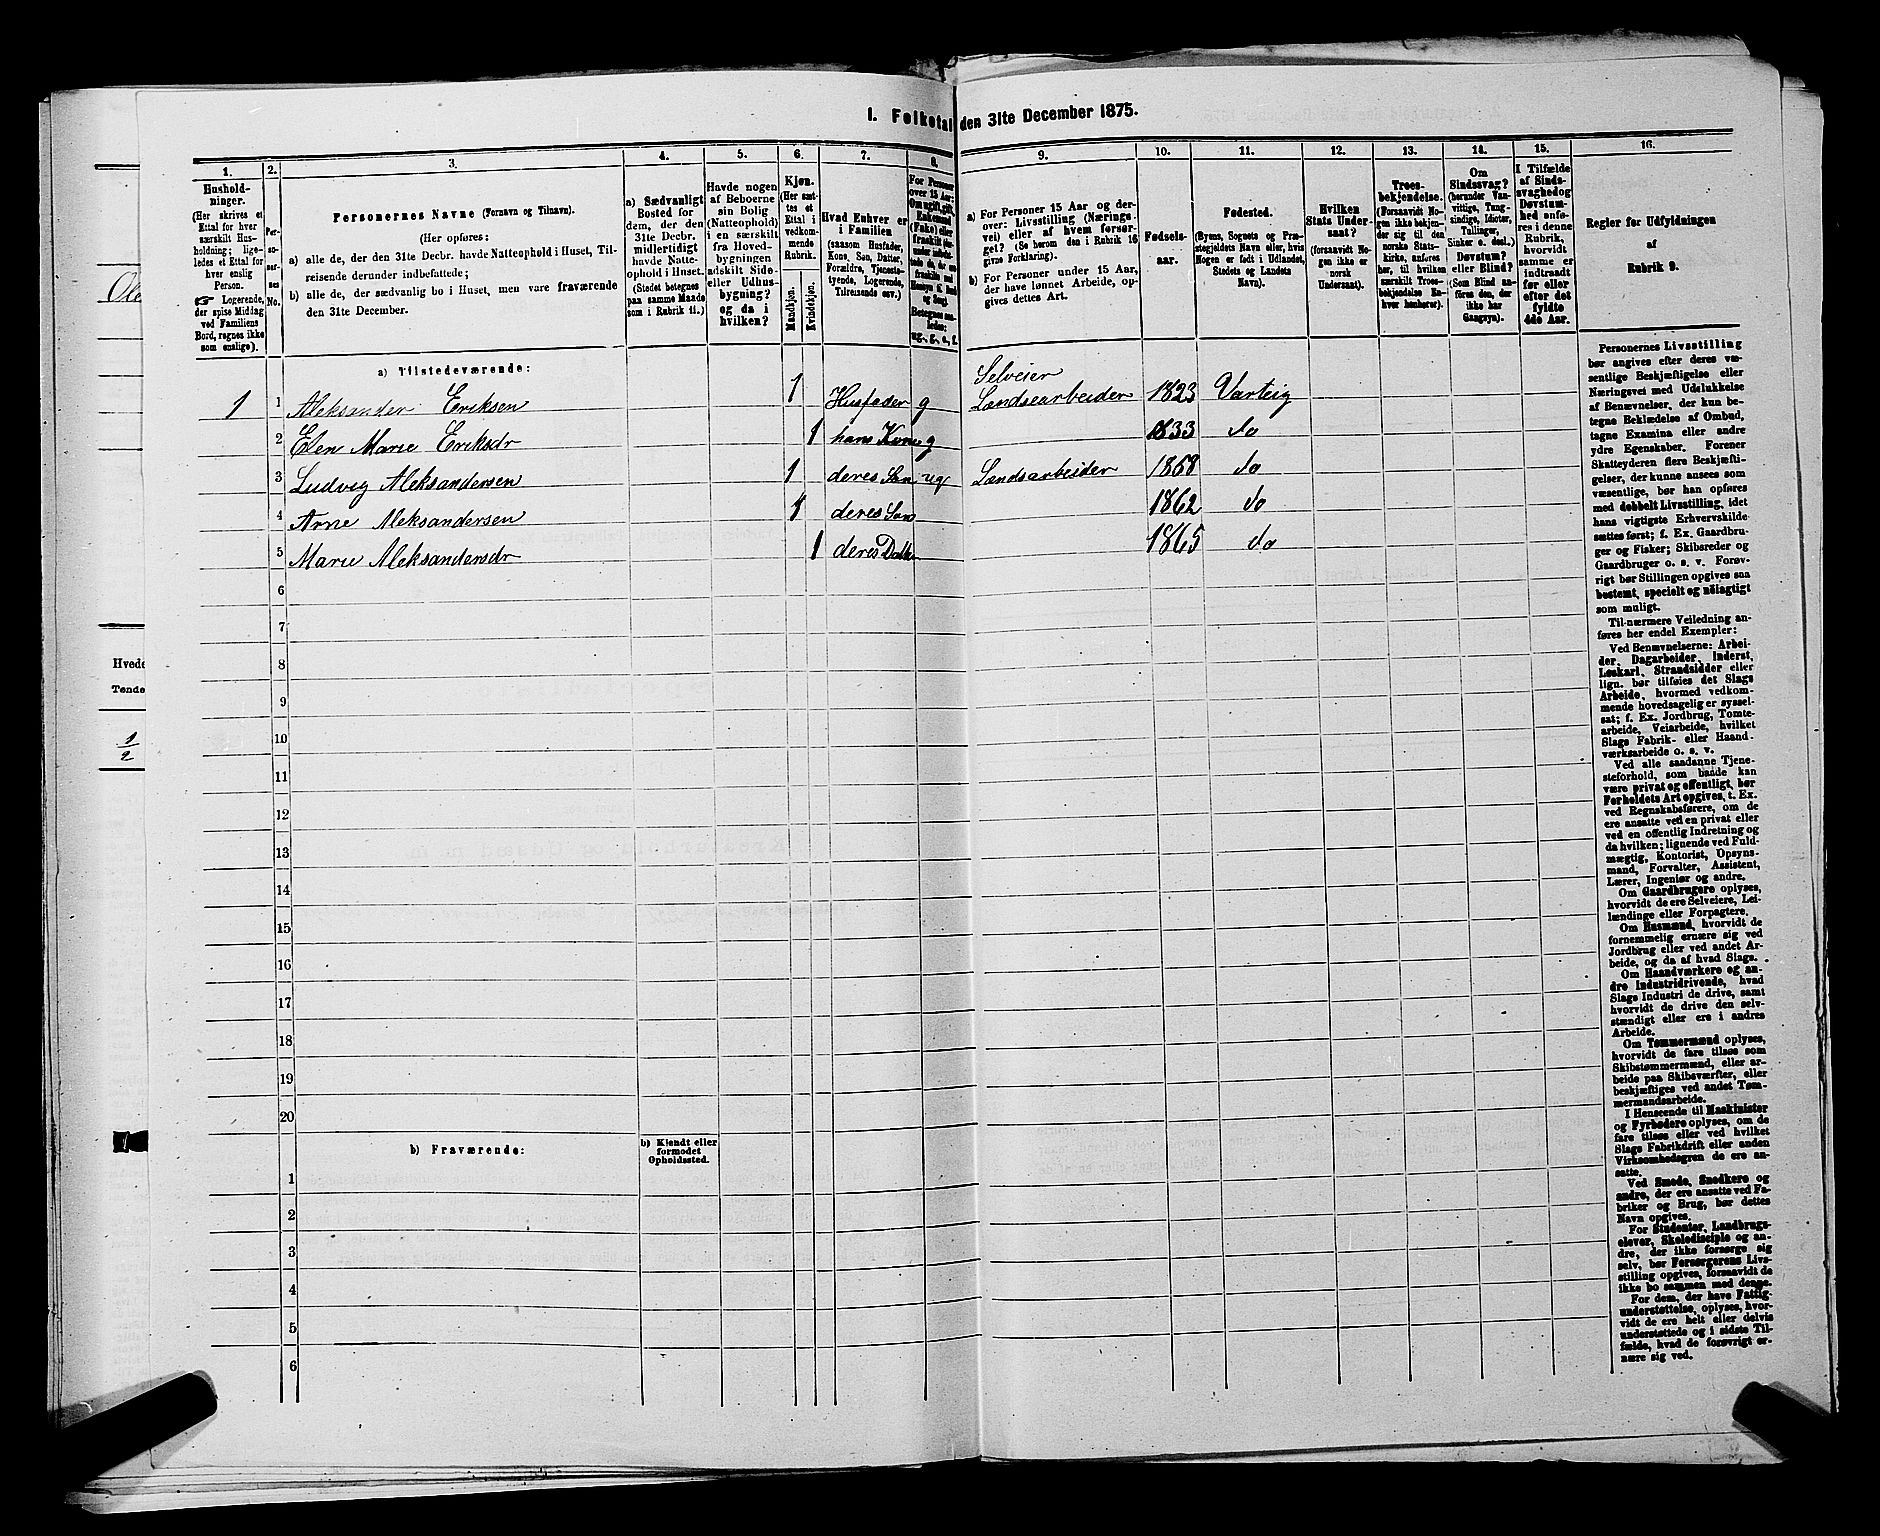 I. Folketal den 31te December 1875.
1.
2.
3.
4.
5.
6.
7.
8.
9.
10.
11.
12.
13.
14.
15.
16.
Hushold-
ninger.
(Her skrives et
Ettal for hver
særskilt Hus-
holdning; lige-
ledes et Ettal for
hver enslig
Person.
☞ Logerende,
der spise Middag
ved Familiens
Bord, regnes ikke
som enslige).
Per-
so-
ner-
nes
No.
Personernes Navne (Fornavn og Tilnavn).
(Her opføres:
a) alle de, der den 31te Decbr. havde Natteophold i Huset, Til-
reisende derunder indbefattede;
b) alle de, der sædvanlig bo i Huset, men vare fraværende
den 31te December.
a) Sædvanligt
Bosted for
dem, der den
31te Decbr.
midlertidigt
havde Natte-
ophold i Huset.
(Stedet betegnes
paa samme Maade
som i Rubrik 11.)
Havde nogen
af Beboerne
sin Bolig
(Natteophold)
i en særskilt
fra Hoved-
bygningen
adskilt Side-
eller Udhus-
bygning?
og da i
hvilken?
Kjøn.
(Her sæt-
tes et
Ettal i
vedkom-
mende
Rubrik.
Mandkjøn.
Kvindekjøn.
Hvad Enhver er
i Familien
(saasom Husfader,
Kone, Søn, Datter,
Forældre, Tjeneste-
tyende, Logerende,
Tilreisende osv.)
For Personer
over 15 Aar:
Om ugift, gift,
Enkemand
(Enke) eller
fraskilt
Betegnes saa-
ledes:
ug., g., e., f.
a) For Personer 15 Aar og der-
over: Livsstilling (Nærings-
vei) eller af hvem forsør-
get? (Se herom den i Rubrik 16
givne Forklaring).
b) For Personer under 15 Aar,
der have lønnet Arbeide, op-
gives dettes Art.
Fødsels-
aar.
Fødested.
(Byens, Sognets og Præ-
stegjeldets Navn eller, hvis
Nogen er født i Udlandet,
Stedets og Landets
Navn).
Hvilken
Stats Under-
saat?
(forsaavidt No-
gen ikke er
norsk
Undersaat).
Troes-
bekjendelse.
(Forsaavidt No-
gen ikke bekjen-
der sig til den
norske Stats-
kirke, anføres
her, til hvilken
særskilt Troes-
bekjendelse En-
hver henhører).
Om
Sindssvag?
(herunder Van-
vittige, Tung-
sindige, Idioter,
Tullinger,
Sinker o. desl.)
Døvstum?
eller Blind?
(Som Blind an-
føres den, der
ikke har
Gangsyn).
I Tilfælde
af Sinds-
svaghed og
Døvstum-
hed anfø-
res i denne
Rubrik,
hvorvidt
samme er
indtraadt
før eller
efter det
fyldte
4de Aar.
Regler for Udfyldningen
af
Rubrik 9.
a) Tilstedeværende:
Selveier
1 1 Aleksander Eriksen 1 Husfader g Landsearbeider 1823 Varteig
2 Elen Marie Eriksdr 1 hans Kone g 1833 do
3 Ludvig Aleksandersen 1 deres Søn ug Landsarbeider 1858 do
4 Arne Aleksandersen 1 deres Søn 1862 do
5 Marie Aleksandersdr 1 deres Datter 1865 do
6
7
8
9
10
11
12
13
14
15
16
17
18
19
20
b) Fraværende:
b) Kjendt eller
formodet
Opholdssted.
1
2
3
4
5
6
Personernes Livsstilling
bør angives efter deres væ-
sentlige Beskjæftigelse eller
Næringsvei med Udelukkelse
af Benævnelser, der kun be-
tegne Beklædelse af Ombud,
tagne Examina eller andre
ydre Egenskaber. Forener
Skatteyderen flere Beskjæfti-
gelser, der kunne ansees som
væsentlige, bør han opføres
med dobbelt Livsstilling, idet
hans vigtigste Erhvervskilde
sættes først; f. Ex. Gaardbru-
ger og Fisker; Skibsreder og
Gaardbruger o. s. v. Forøv-
rigt bør Stillingen opgives saa
bestemt, specielt og nøiagtigt
som muligt.
Til nærmere Veiledning an-
føres her endel Exempler:
Ved Benævnelserne: Arbei-
der, Dagarbeider, Inderst,
Løskarl, Strandsidder eller
lign. bør tilføies det Slags
Arbeide, hvormed vedkom-
mende hovedsagelig er syssel-
sat; f. Ex. Jordbrug, Tomte-
arbeide, Veiarbeide, hvilket
Slags Fabrik- eller Haand-
værksarbeide o. s. v.
Ved alle saadanne Tjene-
steforhold, som baade kan
være privat og offentligt, bør
Forholdets Art opgives, t. Ex.
ved Regnskabsførere, om de
ere ansatte ved en privat eller
ved en offentlig Indretning og
da hvilken; lignende ved Fuld-
mægtig, Kontorist, Opsyns-
mand, Forvalter, Assistent,
Lærer, Ingeniør og andre.
Om Gaardbrugere oplyses,
hvorvidt de ere Selveiere, Lei-
lændinge eller Forpagtere.
Om Husmænd, hvorvidt de
fornemmelig ernære sig ved
Jordbrug eller ved andet Ar-
beide, og da af hvad Slags.
Om Haandværkere og an-
dre Industridrivende, hvad
Slags Industri de drive, samt
hvorvidt de drive den selv-
stændigt eller ere i andres
Arbeide.
Om Tømmermænd oplyses,
hvorvidt de fare tilsøs som
Skibstømmermænd, eller ar-
beide paa Skibsværfter, eller
beskjæftiges ved andet Tøm-
mermandsarbeide.
I Henseende til Maskinister
og Fyrbødere oplyses, om de
fare tilsøs eller ved hvilket
Slags Fabrikdrift eller anden
Virksomhedsgren de ere an-
satte.
Ved Smede, Snedkere og
andre, der ere ansatte ved Fa-
briker og Brug, bør dettes
Navn opgives.
For Studenter, Landbrugs-
elever, Skoledisciple og an-
dre, der ikke forsørge sig
selv, bør Forsørgerens Livs-
stilling opgives, forsaavidt de
ikke bo sammen med denne.
For dem, der have Fattig-
understøttelse, oplyses, hvor-
vidt de ere helt eller delvis
understøttede og i sidste Til-
fælde, hvad de forøvrigt er-
nære sig ved.
Hvede
Tønde
1/2